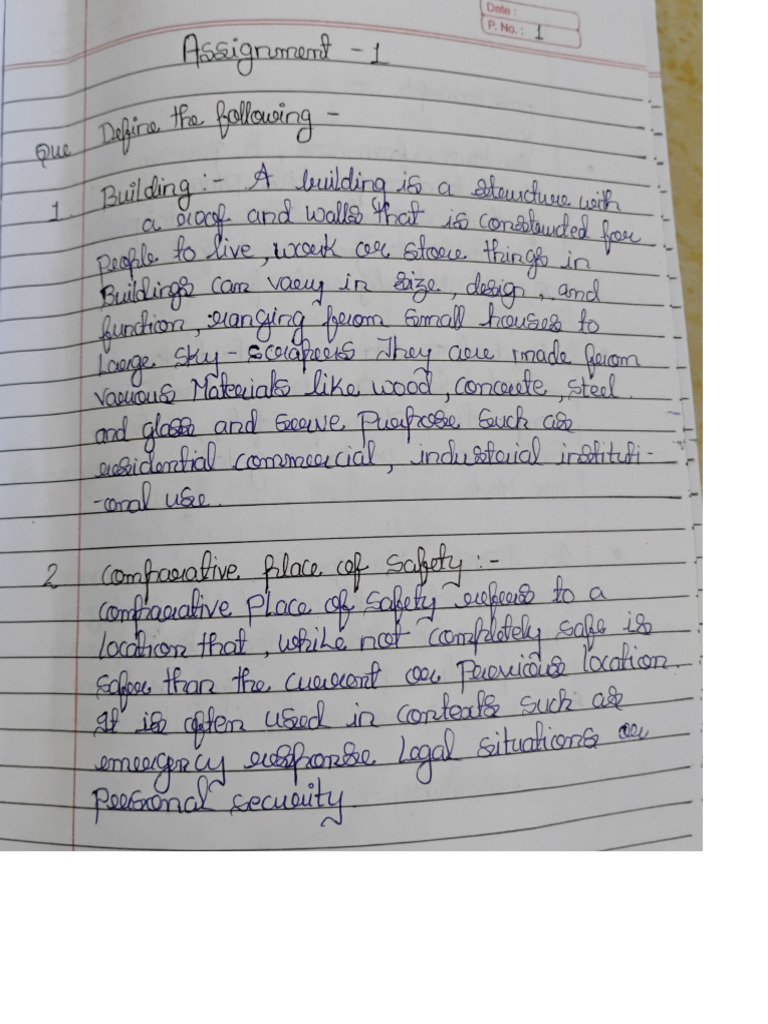 Date :
P. No. : 1
Assignment - 1
Que Define the following -
1. Building :- A building is a structure with
a roof and walls that is constructed for
People to live, work or store things in
Buildings can vary in size, design, and
function, ranging from small houses to
large sky-scrapers They are made from
various Materials like wood, concrete, steel
and glass and serve Purpose such as
residential commercial, industrial instituti-
-onal use.
2 Comparative place of safety :-
Comparative Place of Safety refers to a
location that, while not completely safe is
safer than the current or Previous location.
It is often used in contexts such as
emergency response legal situations or
Personal security